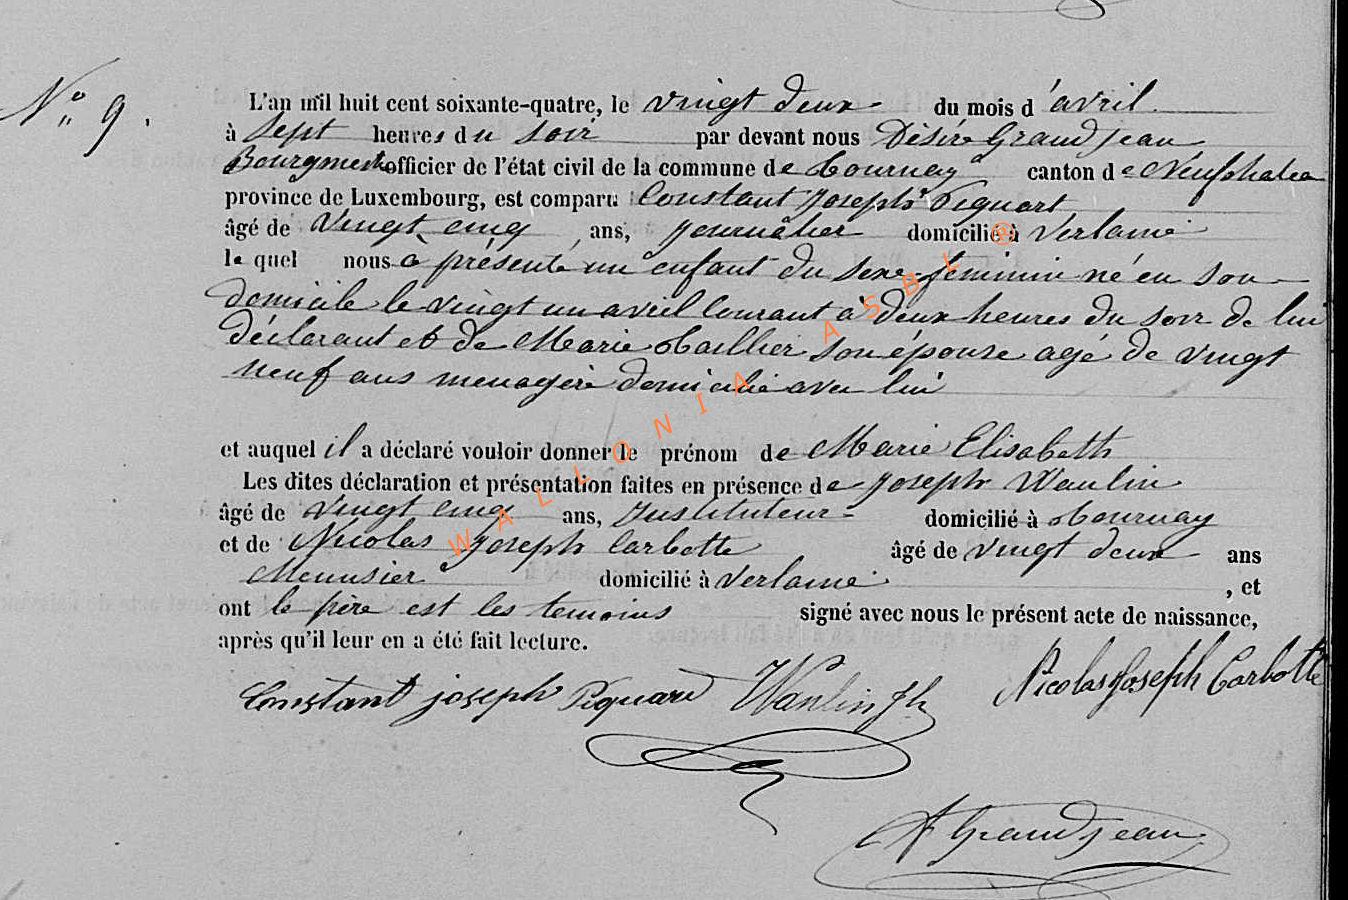 N° 9.
L'an mil huit cent soixante-quatre, le vingt deux du mois d'avril
à Sept heures du soir par devant nous Désiré Grandjean
Bourgmestre officier de l'état civil de la commune de Tournay canton de Neufchateau
province de Luxembourg, est comparu Constant Joseph Piquart
âgé de vingt cinq ans, journalier domicilié à Verlaine
lequel nous a présenté un enfant du sexe féminin né en son
domicile le vingt un avril courant à deux heures du soir de lui
déclarant et de Marie Taillier son épouse agé de vingt
neuf ans menagère domicilié avec lui
et auquel il a déclaré vouloir donner le prénom de Marie Elisabeth
Les dites déclaration et présentation faites en présence de Joseph Wanlin
âgé de vingt cinq ans, Instituteur domicilié à Tournay
et de Nicolas Joseph Carbotte âgé de vingt deux ans
Meunsier domicilié à Verlaine , et
ont le père est les temoins signé avec nous le présent acte de naissance,
après qu'il leur en a été fait lecture.
Constant joseph Piquard Wanlin Jh Nicolas Joseph Carbotte
Grandjean
WALLONIA ASBL ®